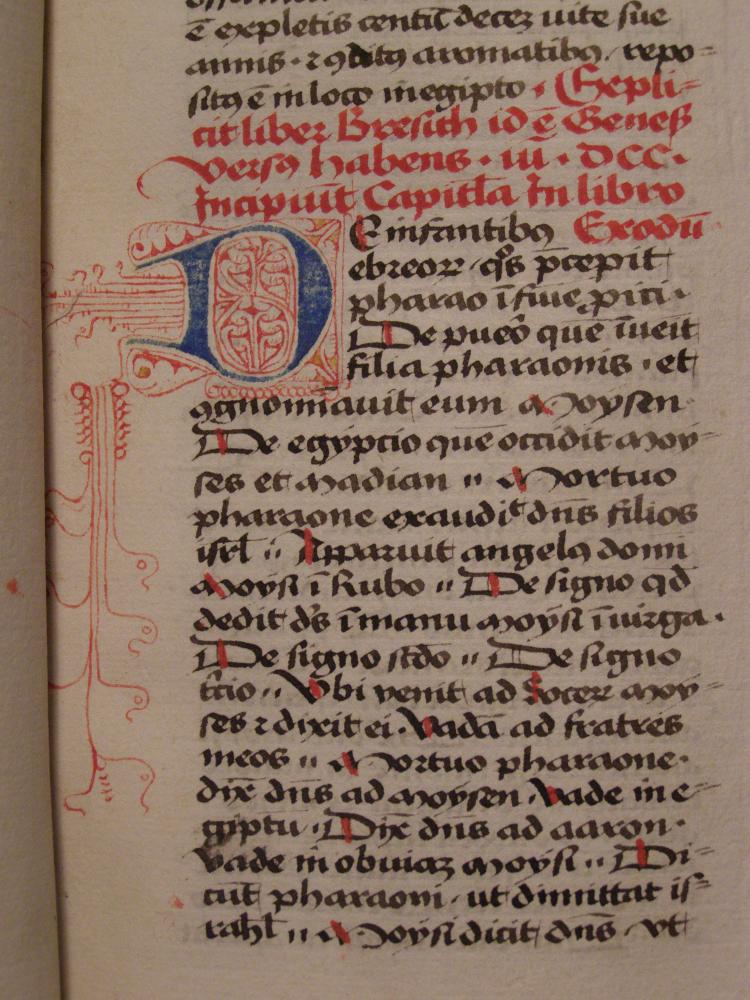 ē expletis centū decez uite sue
annis · ⁊ ꝯditꝰ aromatibꝰ · repo=
sitꝰ ē in loco in egipto · Expli=
cit liber Bresith id ē Genes
versꝰ habens · iii · DCC ·
Incipiūt Capitl̄a In libro
DE infantibꝰ Exodū
ebreoꝝ · qͦs p̄cepit
pharao ī fluē ꝓici ·
De pueō que īueīt
filia pharaonis · et
ꝯgnomīauit eum Moysen
De egyptio que occidit moy=
ses et Madian ·· Mortuo
pharaone exaudiͭ dn̄s filios
isrl̄ ·· Apparuit angelꝰ domi
Moysi ī Rubo ·· De signo qd̄
dedit ds̄ ī manu moysi ī uirga ·
De signo sc̄do ·· De signo
t̄cio ·· Vbi venit ad socerꝝ moy=
ses ⁊ dixit ei · Vadā ad fratres
meos ·· Mortuo pharaone ·
dix̄ dn̄s ad Moysen · Vade in e=
giptū · Dix̄ dn̄s ad aaron ·
Vade in obuiaz moysi ·· Di=
cūt pharaoni · ut dimittat is=
rahl̄ ·· Moysi dicit dn̄s · vt